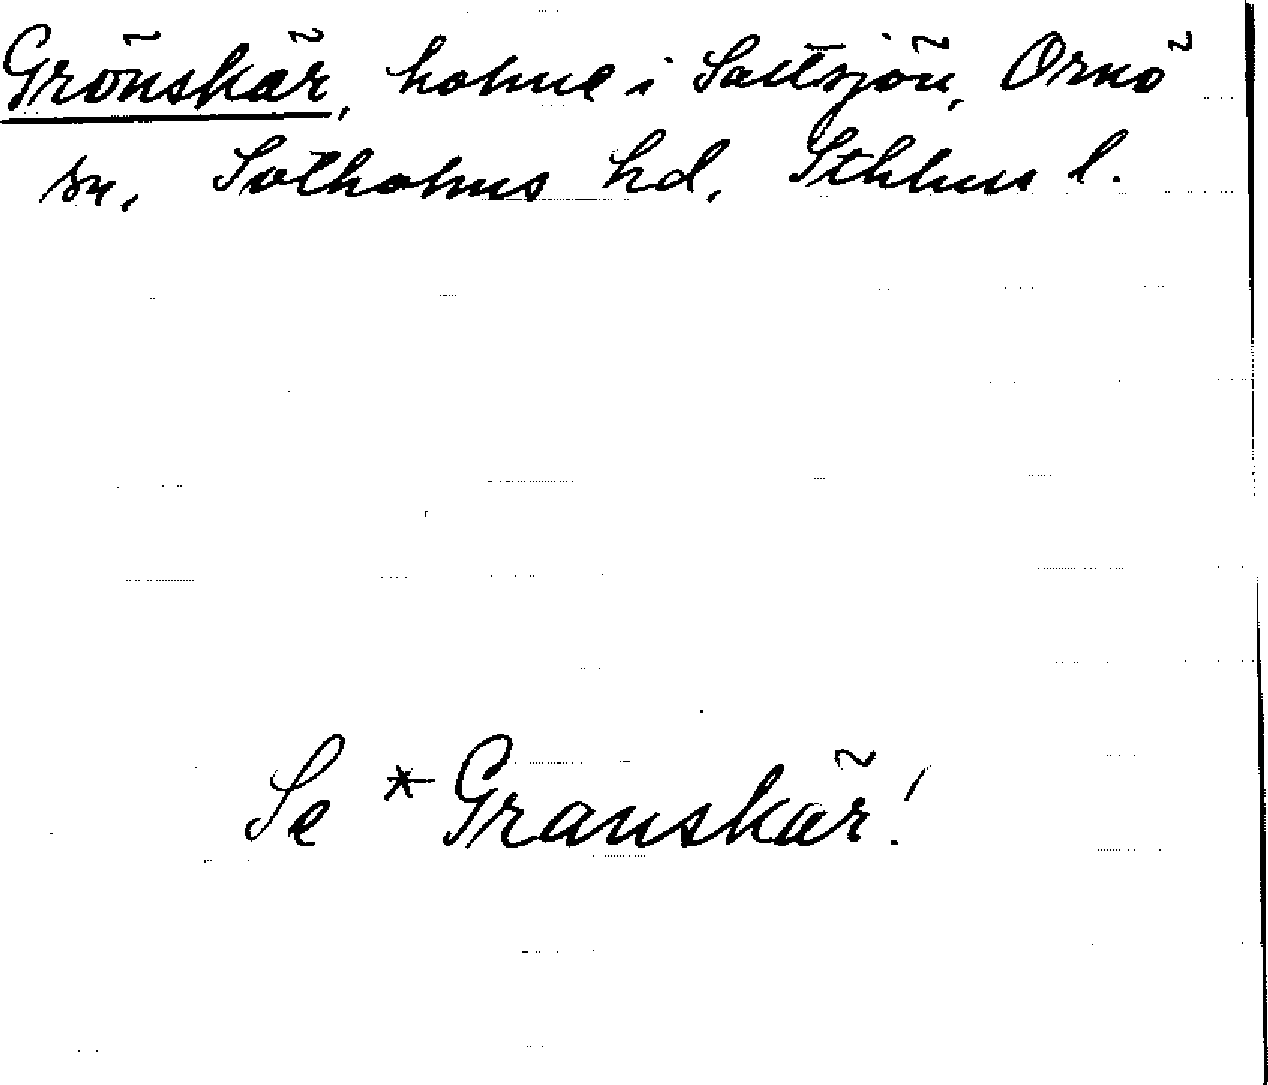 Grönskär, holme i Saltsjön, Ornö
sn, Sotholms hd, Sthlms l.
Se *Granskär!